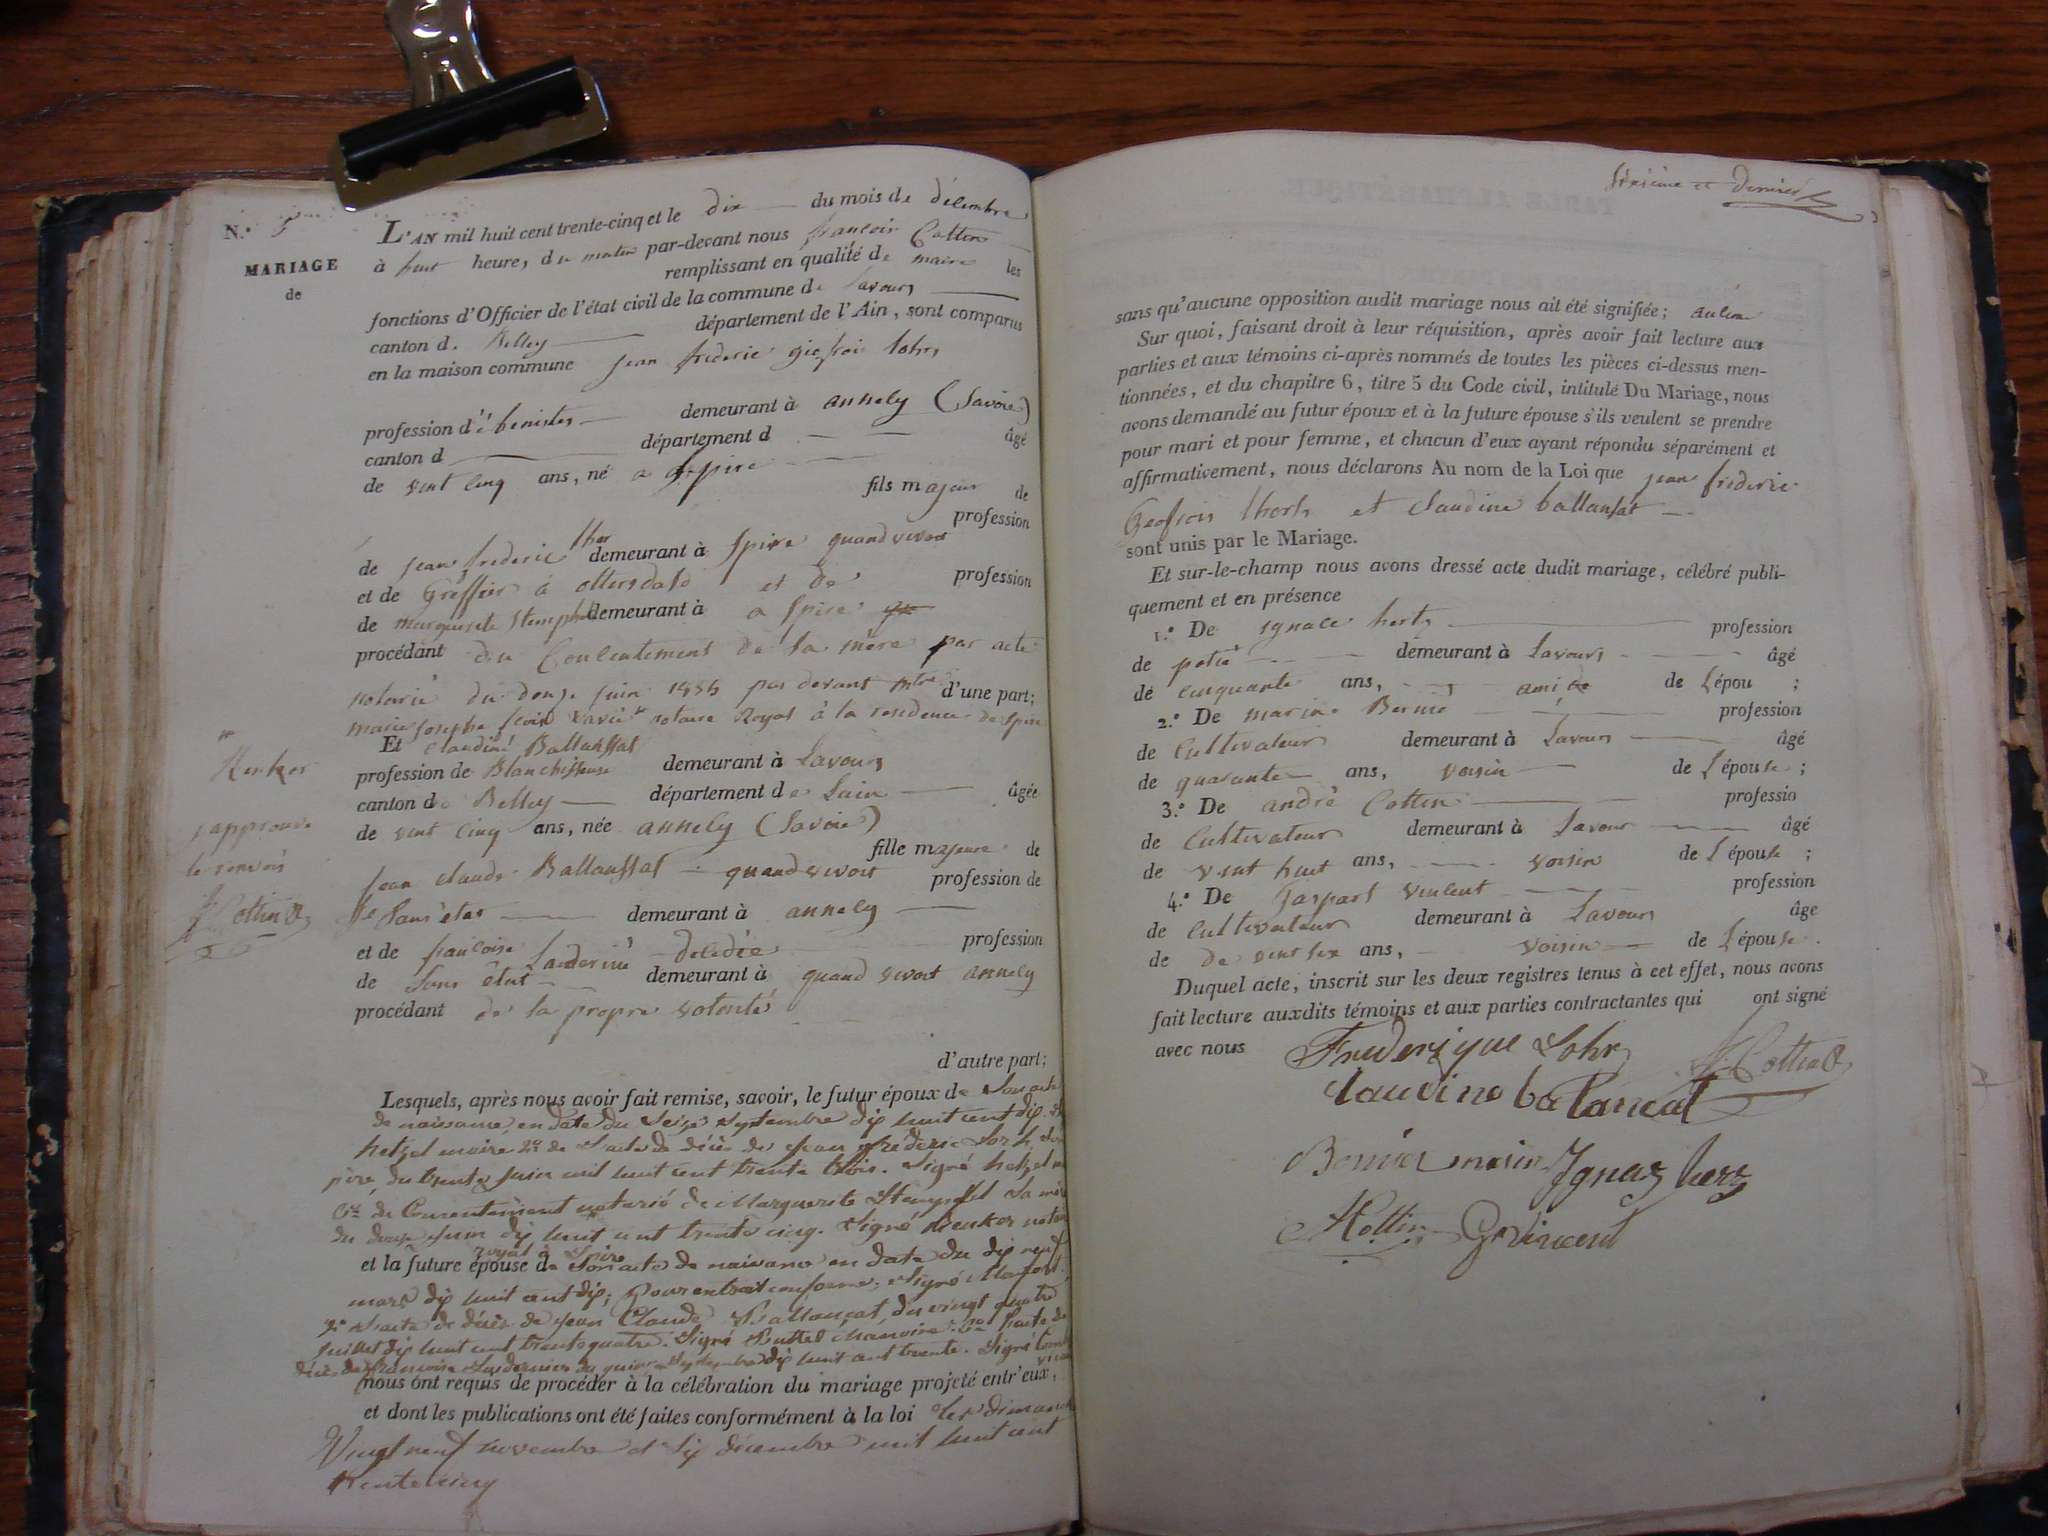 N.° 5
MARIAGE
de
L'AN mil huit cent trente-cinq et le dix du mois de décembre
à huit heure, du matin par-devant nous françois Cottin
remplissant en qualité de maire les
fonctions d'Officier de l'état civil de la commune de Lavours
canton d. Belley département de l'Ain, sont comparus
en la maison commune jean frederic giefroi lohrs
profession d'ébenistes demeurant à annecy (Savoie)
canton d département d âgé
de vent cinq ans, né a spire
fils majeur de
profession
de jean frederic lhor demeurant à Spire quand vivoit
et de Greffier à ottersdald et de profession
de marguerite Stempfel demeurant à a Spire
procédant du Consentement de sa mère par acte
notarié du douze juin 1835 par devant mtre d'une part;
marie josephe notaire Royal à la residence de Spire
Et Claudine Ballanssat
profession de Blanchisseuse demeurant à Lavours
canton de Belley département de Lain âgée
de vent cinq ans, née annecy (Savoie)
fille majeure de
jean claude Ballanssat quand vivoit profession de
de Sans etat demeurant à annecy
et de françoise Landernié profession
de Sans état demeurant à quand vivoit annecy
procédant de sa propre volonté
d'autre part;
Lesquels, après nous avoir fait remise, savoir, le futur époux de Son acte
de naissance, en date du Seize Septembre dix huit cent dix
hetzel maire 2º de l'acte de décès de jean frederic Lorh, Son
père, du trente juin mil huit cent trente trois. Signé hetzel
de Consentement notarié de Marguerite Stempfel Sa mère
du douze juin dix huit cent trente cinq. Signé Renker notaire
royal à Spire
et la future épouse de Son acte de naissance en date du dix neuf
mars dix huit cent dix; Pour extrait conforme; Signé
2º l'acte de décès de jean Claude Ballansat, du vingt quatre
juillet dix huit cent trente quatre. Signé l'acte de
décès de francoise du Septembre dix huit cent trente. Signé
nous ont requis de procéder à la célébration du mariage projeté entr'eux,
et dont les publications ont été faites conformément à la loi les dimanche
Vingt neuf novembre et Six décembre mil huit cent
trente cinq
Renker
japprouve
le renvois
f Cottin
et dernier
sans qu'aucune opposition audit mariage nous ait été signifiée; aucune
Sur quoi, faisant droit à leur réquisition, après avoir fait lecture aux
parties et aux témoins ci-après nommés de toutes les pièces ci-dessus men-
tionnées, et du chapitre 6, titre 5 du Code civil, intitulé Du Mariage, nous
avons demandé au futur époux et à la future épouse s'ils veulent se prendre
pour mari et pour femme, et chacun d'eux ayant répondu séparément et
affirmativement, nous déclarons Au nom de la Loi que jean frederic
Geofrois lhors et claudine ballansat
sont unis par le Mariage.
Et sur-le-champ nous avons dressé acte dudit mariage, célébré publi-
quement et en présence
1.° De ignace hertz profession
de potié demeurant à Lavours âgé
de cinquante ans, ami de de Lépou ;
2.° De marin Bernié profession
de Cultivateur demeurant à Lavours âgé
de quarante ans, voisin de Lépouse ;
3.° De andré Cottin professio
de Cultivateur demeurant à Lavour âgé
de vent huit ans, voisin de Lépouse ;
4.° De Gaspart vincent profession
de Cultivateur demeurant à Lavours âge
de de vent six ans, voisin de Lépouse.
Duquel acte, inscrit sur les deux registres tenus à cet effet, nous avons
fait lecture auxdits témoins et aux parties contractantes qui ont signé
avec nous Frederique Lohr f. Cottin
claudine balansat
Bernier marin Ignaz herz
A Cottin G Vincent